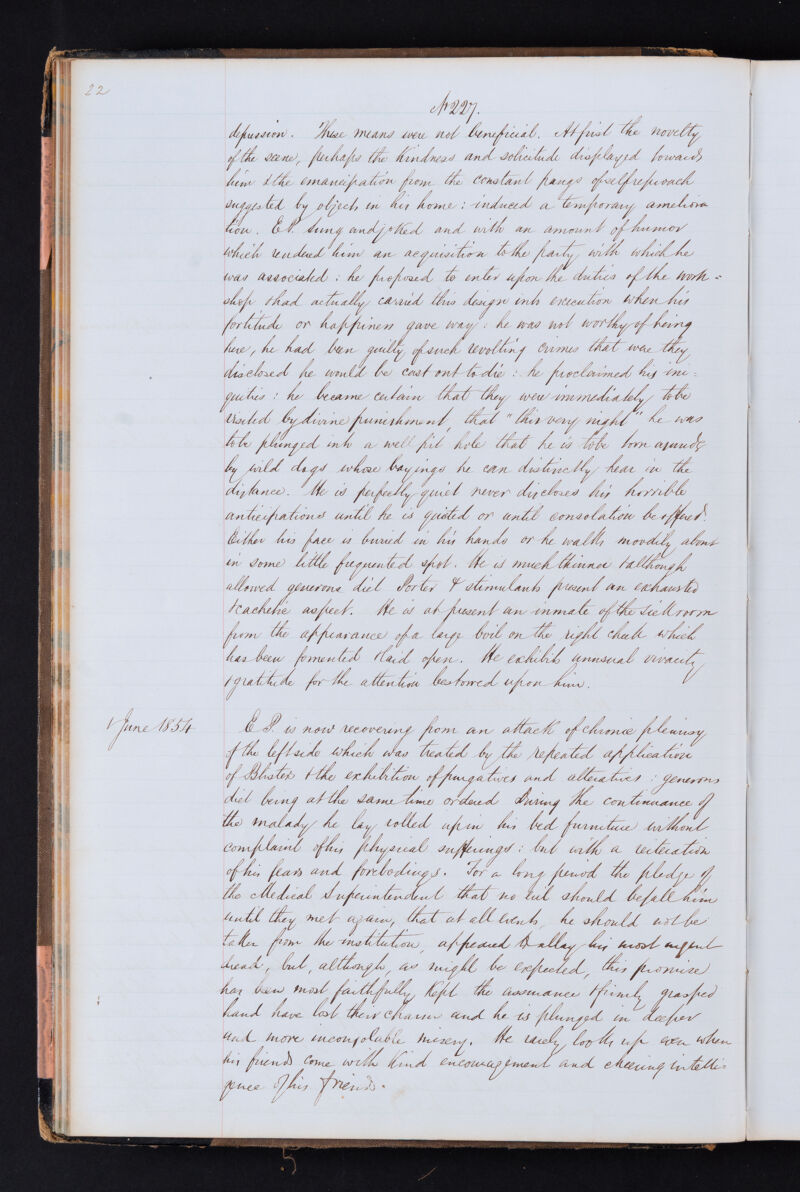 22
No 227.
depression. These means were not beneficial. At first the novelty
of the scene, perhaps the kindness and solicitude displayed towards
him & the emancipation from the constant pangs of self reproach
suggested by objects in his home: induced a temporary ameliora
tion. E.P. sung and joked and with an amount of humor
which rendered him an acquisition to the party with which he
was associated: he proposed to enter upon the duties of the work=
shop & had actually carried this design into execution when his
fortitude or happiness gave way: he was not worthy of being
here, he had been guilty of such revolting crimes that were they
disclosed he would be cast out to die: he proclaimed his ini=
quities: he became certain that they were immediately to be
visited by divine punishment, that "this very night" he was
to be plunged into a well pit hole that he is to be torn asunder
by wild dogs whose bayings he can distinctly hear in the
distance. He is perfectly quiet never discloses his horrible
anticipations until he is quieted or until consolation be offered.
Either his face is buried in his hands or he walks moodily about
in some little frequented spot. He is much thinner & although
allowed generous diet Porter & stimulants present an exhausted
& cachetic aspect. He is at present an inmate of the sick room
from the appearance of a large boil on the right cheek which
has been fomented & laid open. He exhibits unusual vivacity
& gratitude for the attention bestowed upon him.
1 June 1854
E.P. is now recovering from an attack of chronic pleurisy
of the left side which was treated by the repeated application
of Blister & the exhibition of purgatives and alteratives: generous
diet being at the same time ordered During the continuance of
the malady he lay rolled up in his bed furniture without
complaint of his physical sufferings: but with a reiteration
of his fears and forebodings. For a long period the pledge of
the Medical Superintendent that no evil should befall him
until they met again, that at all events, he should not be
taken from the institution, appeared to allay his most urgent
dread, but, although, as might be expected, this promise
has been most faithfully kept the assurance & firmly grasped
hand have lost their charm and he is plunged in deeper
and more inconsolable misery. He rarely looks up even when
his friends come with kind encouragement and cheering intelli
gence of his friends.